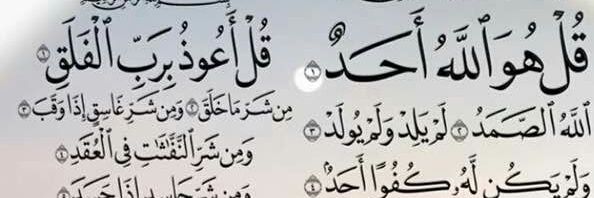 قُلْ هُوَ ٱللَّهُ أَحَدٌ ١
ٱللَّهُ ٱلصَّمَدُ ٢ لَمْ يَلِدْ وَلَمْ يُولَدْ ٣
وَلَمْ يَكُن لَّهُۥ كُفُوًا أَحَدٌۢ ٤
قُلْ أَعُوذُ بِرَبِّ ٱلْفَلَقِ ١
مِن شَرِّ مَا خَلَقَ ٢ وَمِن شَرِّ غَاسِقٍ إِذَا وَقَبَ ٣
وَمِن شَرِّ ٱلنَّفَّٰثَٰتِ فِى ٱلْعُقَدِ ٤
وَمِن شَرِّ حَاسِدٍ إِذَا حَسَدَ